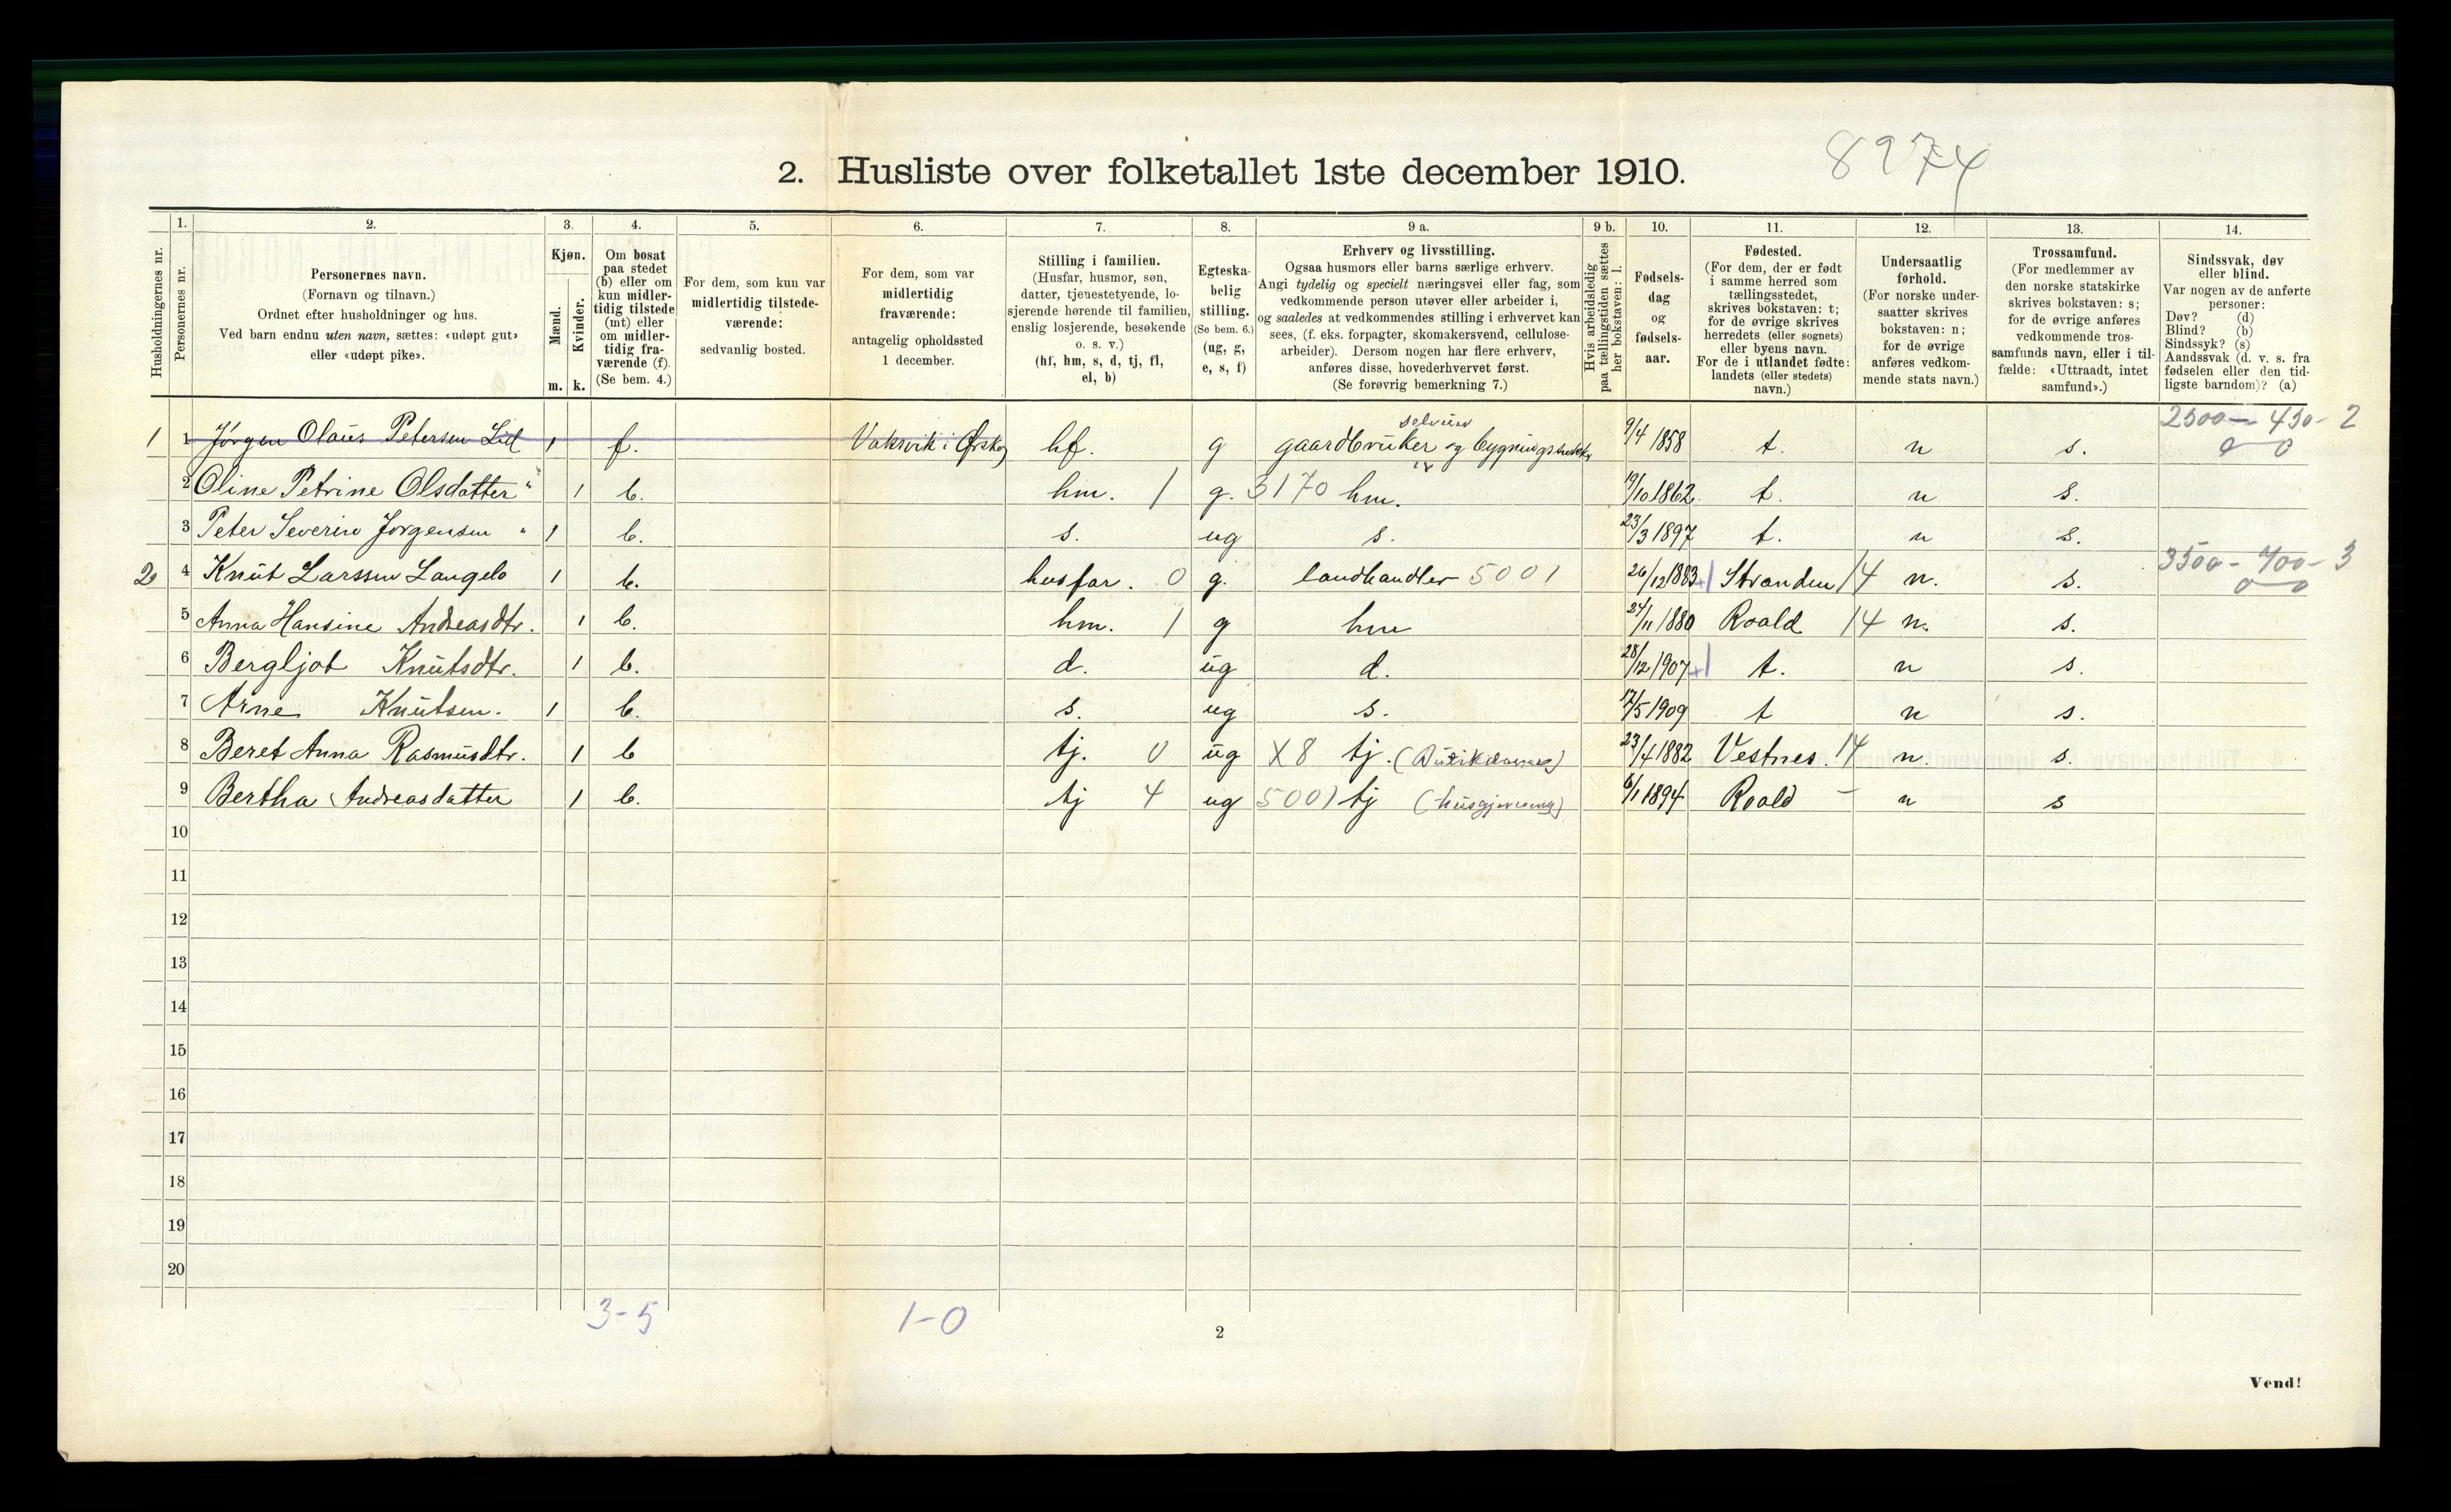 8274
2. Husliste over folketallet 1ste december 1910.
Husholdningernes nr.
1.
Personernes nr.
2.
Personernes navn.
(Fornavn og tilnavn.)
Ordnet efter husholdninger og hus.
Ved barn endnu uten navn, sættes: «udøpt gut»
eller «udøpt pike».
3.
Kjøn.
Mænd.
Kvinder.
m. k.
4.
Om bosat
paa stedet
(b) eller om
kun midler-
tidig tilstede
(mt) eller
om midler-
tidig fra-
værende (f).
(Se bem. 4.)
5.
For dem, som kun var
midlertidig tilstede-
værende:
sedvanlig bosted.
6.
For dem, som var
midlertidig
fraværende:
antagelig opholdssted
1 december.
7.
Stilling i familien.
(Husfar, husmor, søn,
datter, tjenestetyende, lo-
sjerende hørende til familien,
enslig losjerende, besøkende
o. s. v.)
(hf, hm, s, d, tj, fl,
el, b)
8.
Egteska-
belig
stilling.
(Se bem. 6.)
(ug, g,
e, s, f)
9 a.
Erhverv og livsstilling.
Ogsaa husmors eller barns særlige erhverv.
Angi tydelig og specielt næringsvei eller fag, som
vedkommende person utøver eller arbeider i,
og saaledes at vedkommendes stilling i erhvervet kan
sees, (f. eks. forpagter, skomakersvend, cellulose-
arbeider). Dersom nogen har flere erhverv,
anføres disse, hovederhvervet først.
(Se forøvrig bemerkning 7.)
9 b.
Hvis arbeidsledig
paa tællingstiden sættes
her bokstaven: l.
10.
Fødsels-
dag
og
fødsels-
aar.
11.
Fødested.
(For dem, der er født
i samme herred som
tællingsstedet,
skrives bokstaven: t;
for de øvrige skrives
herredets (eller sognets)
eller byens navn.
For de i utlandet fødte:
landets (eller stedets)
navn.)
12.
Undersaatlig
forhold.
(For norske under-
saatter skrives
bokstaven: n;
for de øvrige
anføres vedkom-
mende stats navn.)
13.
Trossamfund.
(For medlemmer av
den norske statskirke
skrives bokstaven: s;
for de øvrige anføres
vedkommende tros-
samfunds navn, eller i til-
fælde: «Uttraadt, intet
samfund».)
14.
Sindssvak, døv
eller blind.
Var nogen av de anførte
personer:
Døv? (d)
Blind? (b)
Sindssyk? (s)
Aandssvak (d. v. s. fra
fødselen eller den tid-
ligste barndom)? (a)
2500 - 450 - 2
selveier
1 1 Jørgen Olaus Petersen Lid 1 f. Vaksvik i Ørskog hf. g gaardbruker og 9/4 1858 t. n s. 0 0
2 Oline Petrine Olsdatter " 1 b. hm. 1 g. 3170 hm. 19/10 1862. t. n s.
3 Peter Severin Jørgensen " 1 b. s. ug s. 23/3 1897 t. n s.
3500 - 700 - 3
2 4 Knut Larssen Langelo 1 b. husfar. 0 g. landhandler 5001 26/12 1883 Stranden 14 n. s. 0 0
5 Anna Hansine Andreasdtr. 1 b. hm. 1 g hm 24/11 1880 Roald 14 n. s.
6 Bergljot Knutsdtr. 1 b. d. ug d. 28/12 1907 t. n s.
7 Arne Knutsen. 1 b. s. ug s. 17/5 1909 t n s.
8 Beret Anna Rasmusdtr. 1 b tj. 0 ug X8 tj. 23/4 1882 Vestnes. 14 n. s.
9 Bertha Andreasdatter 1 b. tj 4 ug 5001 tj (husgjerning) 6/1 1894 Roald - n s
10
11
12
13
14
15
16
17
18
19
20
3-5 1-0
2
Vend!